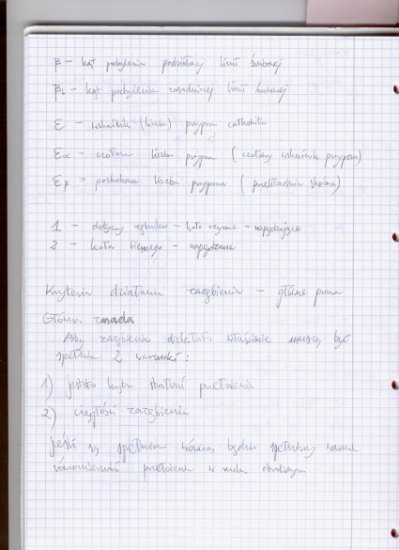 β – kąt pochylenia podziałowej linii śrubowej
βb – kąt pochylenia zasadniczej linii śrubowej
ε – wskaźnik (liczba) przyporu całkowita
εα – czołowa liczba przyporu (czołowy wskaźnik przyporu)
= poskokowa liczba przyporu (przekładnie skośne)
1 – dotyczy zębnika – koła czynne – napędzające
2 – koła biernego – napędzane
Kryteria działania zazębienia – główne prawa
Główna zasada
Aby zazębienie działało właściwie muszą być
spełnione 2 warunki:
1) przełożenia
2) ciągłość zazębienia
jeśli są spełnione wówczas będzie spełniony warunek
przełożenia w